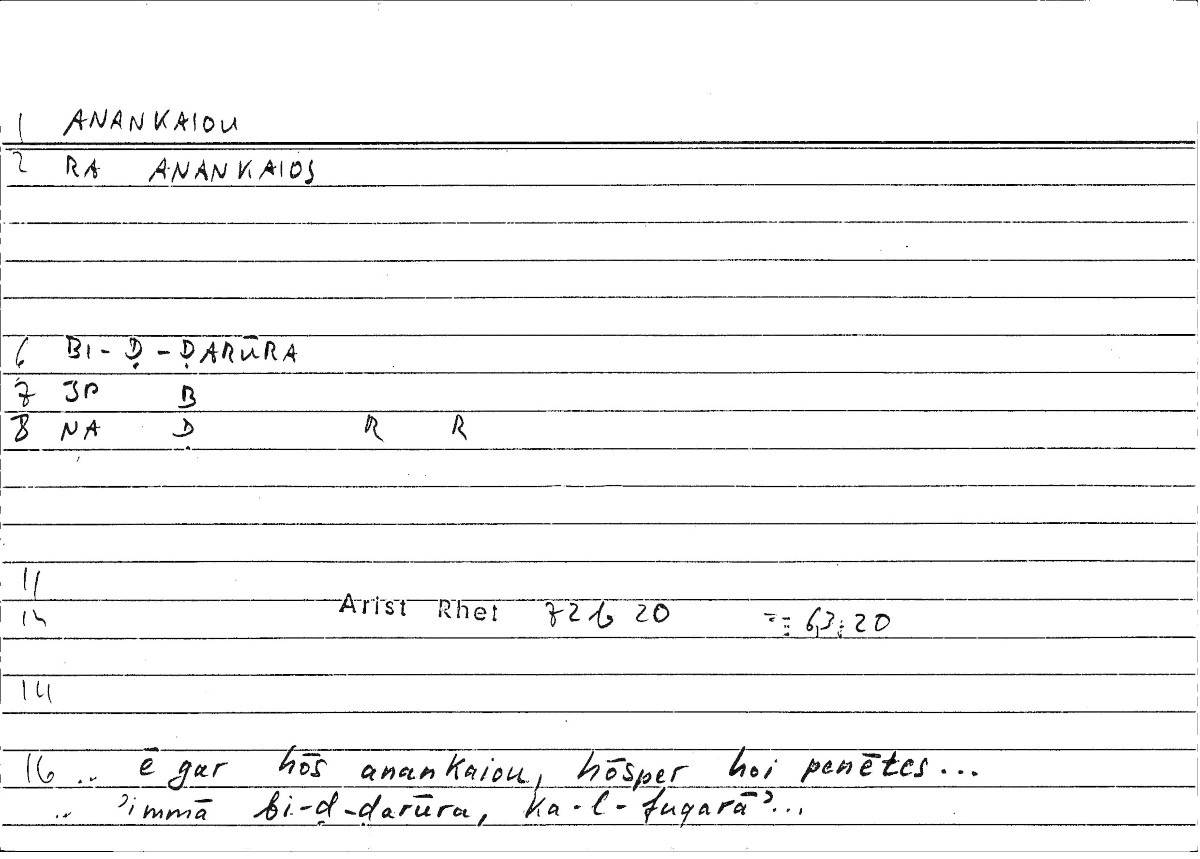 1 ANANKAIOU
2 RA ANANKAIOS
6 BI-Ḍ-ḌARŪRA
7 JP B
8 NA Ḍ R R
11
12 Arist Rhet 72b 20 = 63:20
14
16 .. ē gar hōs anankaiou, hōsper hoi penētes...
.. ʾimmā bi-ḍ-ḍarūra, ka-l-fuqarāʾ...